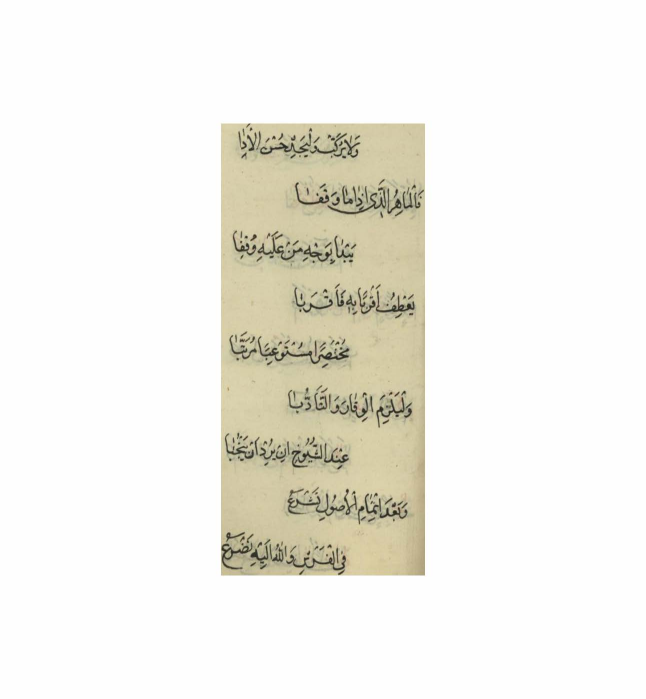 وَلَا يُرَكِّبْ وَلْيُجِدْ حُسْنَ الْأَدَا
فَالْمَاهِرُ الَّذِي إِذَا مَا وَقَفَا
يَبْدَا بِوَجْهِ مَنْ عَلَيْهِ وَقَفَا
يَعْطِفُ أَقْرَبًا بِهِ فَأَقْرَبَا
مُخْتَصِرًا مُسْتَوْعِبًا مُرَتِّبَا
وَلْيَلْزَمِ الْوِقَارَ وَالتَّأَدُّبَا
عِنْدَ الشُّيُوخِ إِنْ يُرِدْ أَنْ يَنْجُبَا
وَبَعْدَ إِتْمَامِ الْأُصُولِ نَشْرَعُ
فِي الْفَرْشِ وَاللهُ إِلَيْهِ نَضْرَعُ